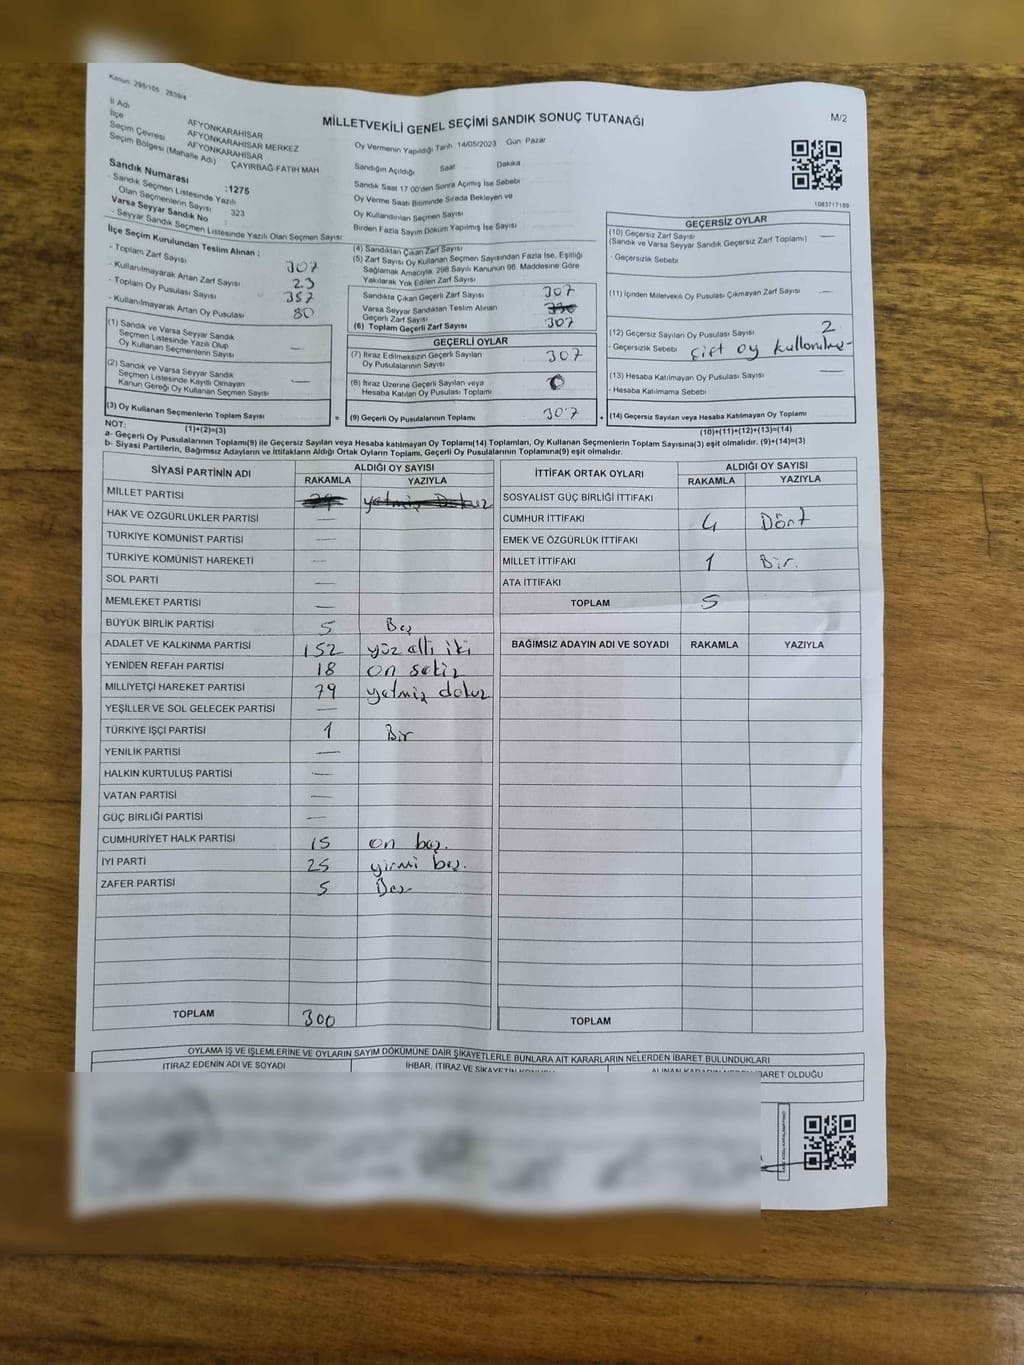 Kanun: 298/105 , 2839/4
MİLLETVEKİLİ GENEL SEÇİMİ SANDIK SONUÇ TUTANAĞI
M/2
İl Adı AFYONKARAHİSAR
İlçe AFYONKARAHİSAR MERKEZ
Seçim Çevresi AFYONKARAHİSAR
Seçim Bölgesi (Mahalle Adı) ÇAYIRBAĞ-FATİH MAH
Sandık Numarası :1275
- Sandık Seçmen Listesinde Yazılı
Olan Seçmenlerin Sayısı 323
Varsa Seyyar Sandık No :
- Seyyar Sandık Seçmen Listesinde Yazılı Olan Seçmen Sayısı:
Oy Vermenin Yapıldığı Tarih 14/05/2023 Gün Pazar
Sandığın Açıldığı Saat Dakika
Sandık Saat 17.00'den Sonra Açılmış İse Sebebi
Oy Verme Saati Bitiminde Sırada Bekleyen ve
Oy Kullandırılan Seçmen Sayısı
Birden Fazla Sayım Döküm Yapılmış İse Sayısı
1083717189
İlçe Seçim Kurulundan Teslim Alınan :
- Toplam Zarf Sayısı 307
- Kullanılmayarak Artan Zarf Sayısı 23
- Toplam Oy Pusulası Sayısı 357
- Kullanılmayarak Artan Oy Pusulası 80
(1) Sandık ve Varsa Seyyar Sandık
Seçmen Listesinde Yazılı Olup
Oy Kullanan Seçmenlerin Sayısı —
(2) Sandık ve Varsa Seyyar Sandık
Seçmen Listesinde Kayıtlı Olmayan
Kanun Gereği Oy Kullanan Seçmen Sayısı —
(3) Oy Kullanan Seçmenlerin Toplam Sayısı
(1)+(2)=(3)
(4) Sandıktan Çıkan Zarf Sayısı
(5) Zarf Sayısı Oy Kullanan Seçmen Sayısından Fazla İse, Eşitliği
Sağlamak Amacıyla, 298 Sayılı Kanunun 98. Maddesine Göre
Yakılarak Yok Edilen Zarf Sayısı
Sandıkta Çıkan Geçerli Zarf Sayısı 307
Varsa Seyyar Sandıktan Teslim Alınan
Geçerli Zarf Sayısı
(6) Toplam Geçerli Zarf Sayısı 307
GEÇERLİ OYLAR
(7) İtiraz Edilmeksizin Geçerli Sayılan
Oy Pusulalarının Sayısı 307
(8) İtiraz Üzerine Geçerli Sayılan veya
Hesaba Katılan Oy Pusulası Toplamı 0
= (9) Geçerli Oy Pusulalarının Toplamı 307
GEÇERSİZ OYLAR
(10) Geçersiz Zarf Sayısı —
(Sandık ve Varsa Seyyar Sandık Geçersiz Zarf Toplamı)
- Geçersizlik Sebebi
(11) İçinden Milletvekili Oy Pusulası Çıkmayan Zarf Sayısı —
(12) Geçersiz Sayılan Oy Pusulası Sayısı 2
- Geçersizlik Sebebi çift oy
(13) Hesaba Katılmayan Oy Pusulası Sayısı —
- Hesaba Katılmama Sebebi
+ (14) Geçersiz Sayılan veya Hesaba Katılmayan Oy Toplamı
(10)+(11)+(12)+(13)=(14)
NOT:
a- Geçerli Oy Pusulalarının Toplamı(9) ile Geçersiz Sayılan veya Hesaba katılmayan Oy Toplamı(14) Toplamları, Oy Kullanan Seçmenlerin Toplam Sayısına(3) eşit olmalıdır. (9)+(14)=(3)
b- Siyasi Partilerin, Bağımsız Adayların ve İttifakların Aldığı Ortak Oyların Toplamı, Geçerli Oy Pusulalarının Toplamına(9) eşit olmalıdır.
SİYASİ PARTİNİN ADI ALDIĞI OY SAYISI
RAKAMLA YAZIYLA
MİLLET PARTİSI 79 yetmiş Dokuz
HAK VE ÖZGÜRLÜKLER PARTİSİ —
TÜRKİYE KOMÜNİST PARTİSİ —
TÜRKİYE KOMÜNİST HAREKETİ —
SOL PARTİ —
MEMLEKET PARTİSİ —
BÜYÜK BİRLİK PARTİSİ 5 Beş
ADALET VE KALKINMA PARTİSİ 152 yüz elli iki
YENİDEN REFAH PARTİSİ 18 on sekiz
MİLLİYETÇİ HAREKET PARTİSİ 79 yetmiş dokuz
YEŞİLLER VE SOL GELECEK PARTİSİ —
TÜRKİYE İŞÇİ PARTİSİ 1 Bir
YENİLİK PARTİSİ —
HALKIN KURTULUŞ PARTİSİ —
VATAN PARTİSİ —
GÜÇ BİRLİĞİ PARTİSİ —
CUMHURİYET HALK PARTİSİ 15 on beş.
İYİ PARTİ 25 yirmi beş.
ZAFER PARTİSİ 5 Beş
TOPLAM 300
İTTİFAK ORTAK OYLARI ALDIĞI OY SAYISI
RAKAMLA YAZIYLA
SOSYALİST GÜÇ BİRLİĞİ İTTİFAKI
CUMHUR İTTİFAKI 4 Dört
EMEK VE ÖZGÜRLÜK İTTİFAKI
MİLLET İTTİFAKI 1 Bir.
ATA İTTİFAKI
TOPLAM 5
BAĞIMSIZ ADAYIN ADI VE SOYADI RAKAMLA YAZIYLA
TOPLAM
OYLAMA İŞ VE İŞLEMLERİNE VE OYLARIN SAYIM DÖKÜMÜNE DAİR ŞİKAYETLERLE BUNLARA AİT KARARLARIN NELERDEN İBARET BULUNDUKLARI
İTİRAZ EDENİN ADI VE SOYADI İHBAR, İTİRAZ VE ŞİKAYETİN KONUSU ALINAN KARARIN NEDEN İBARET OLDUĞU